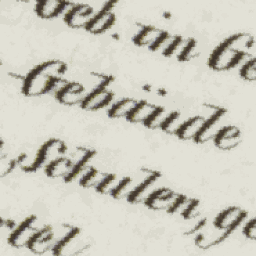 Geb. im Ge
Gebäude
Schulen, ge
rtel